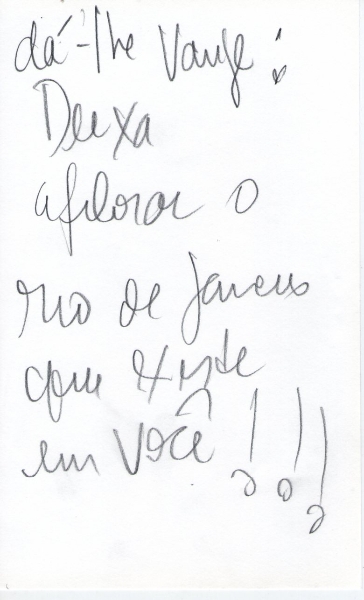 dá-lhe Vange!
Deixa
aflorar o
rio de janeiro
que existe
em você!!!